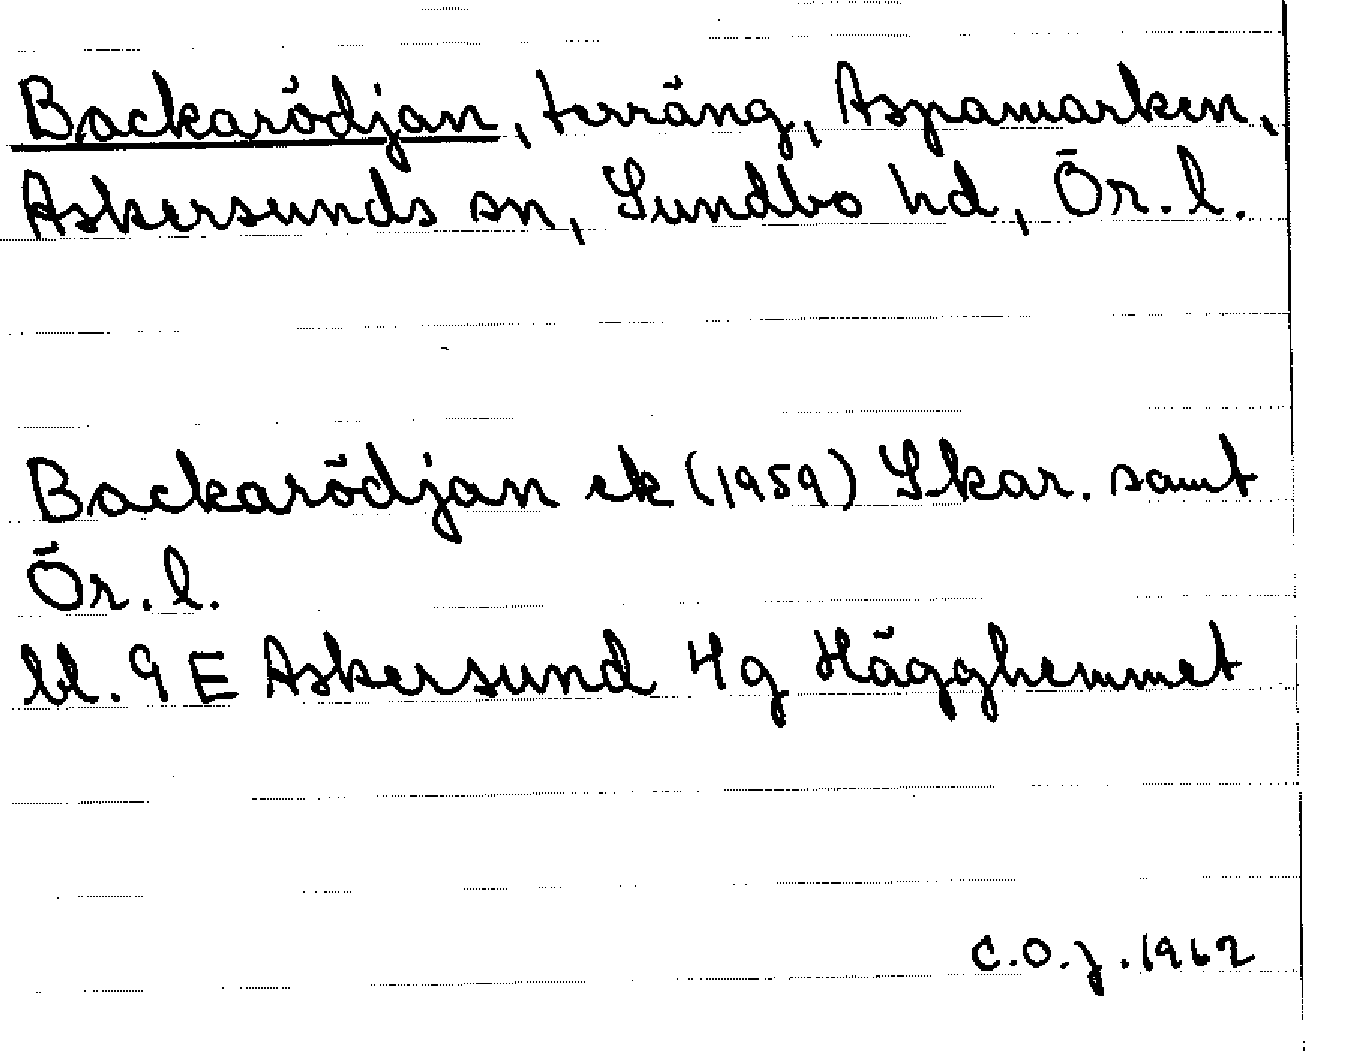 Backarödjan, terräng, Aspamarken,
Askersunds sn, Sundbo hd, Ör. l.
Backarödjan ek (1959) Skar. samt
Ör. l.
bl. 9 E Askersund 4g Hägghemmet
C.O.J. 1962